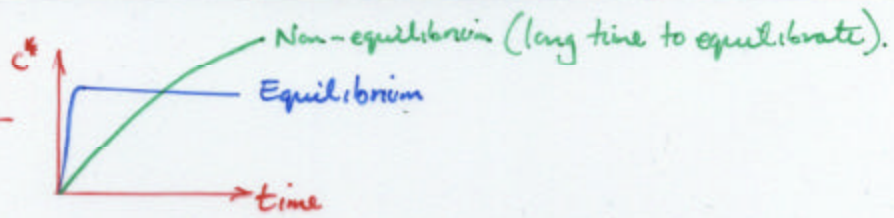 Non-equilibrium (long time to equilibrate).
c*
Equilibrium
time